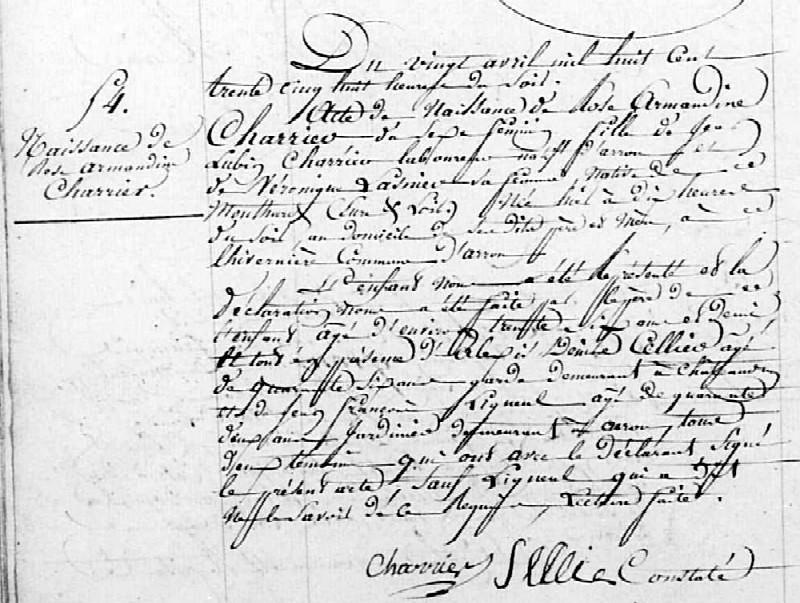 54.
Naissance de
Rose armandine
Charrier.
Du vingt avril mil huit Cent
trente cinq huit heures du Soir.
Acte de Naissance de Rose Armandine
Charrier du sexe féminin fille de Jean
Lubin Charrier laboureur natif d'arrou et
de Véronique Lasnier sa femme native de
Monthard (Eure & Loir) Née hier à dix heures
du Soir au domicile de sesdits père et mère, à
lhivernière Commune d'arrou
L'enfant Nous a été Représenté et la
déclaration Nous a été faite par le père de
l'enfant âgé d'environ trente six ans et demi
le tout en présence d' Denis Cellier âgé
de quarante six ans garde demeurant à Chateaudun
et de françois Ligneul âgé de quarante
deux ans Jardinier demeurant à arrou, tous
deux témoins qui ont avec le déclarant Signé
le présent acte, Sauf Ligneul qui a dit
Ne le Savoir de ce Requis, Lecture faite.
Charrier Sellier Constaté